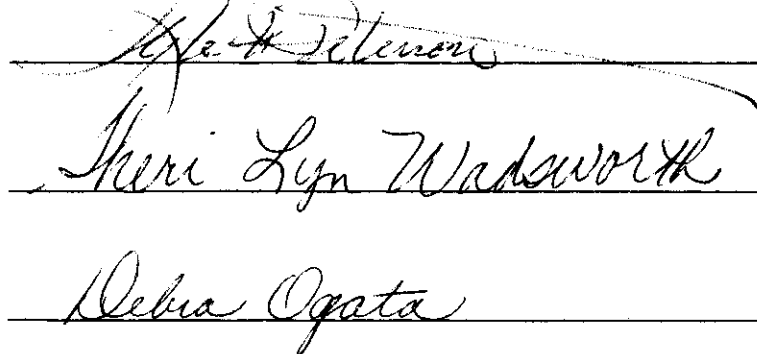 Peterson
Sheri Lyn Wadsworth
Debra Ogata